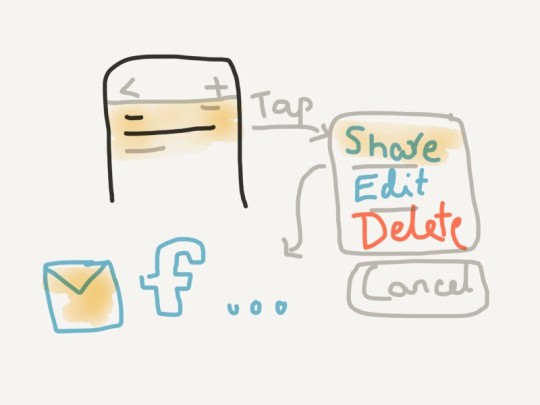 < +
Tap
Share
Edit
Delete
Cancel
f ...